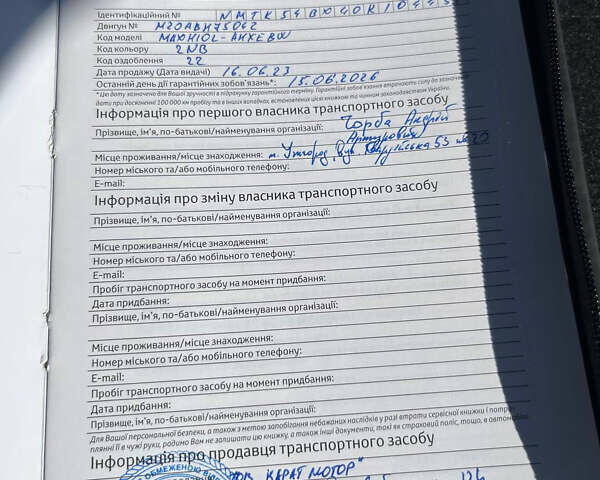 Ідентифікаційний №
Двигун № M20ABH75062
Код моделі MAXH10L-AHXEBW
Код кольору 2NB
Код оздоблення 22
Дата продажу (Дата видачі) 16.06.23
Останній день дії гарантійних зобов'язань*: 15.06.2026
*Цю дату зазначено для Вашої зручності в підрахунку гарантійного терміну. Гарантійні зобов'язання втрачають силу до зазначеної
дати при досягненні 100 000 км пробігу та в інших випадках, встановлених цією книжкою та чинним законодавством України.
Інформація про першого власника транспортного засобу
Прізвище, ім'я, по-батькові/найменування організації: Чорба Андрій
Артурович
Місце проживання/місце знаходження: м. Ужгород, вул. 53
Номер міського та/або мобільного телефону:
E-mail:
Інформація про зміну власника транспортного засобу
Прізвище, ім'я, по-батькові/найменування організації:
Місце проживання/місце знаходження:
Номер міського та/або мобільного телефону:
E-mail:
Пробіг транспортного засобу на момент придбання:
Дата придбання:
Прізвище, ім'я, по-батькові/найменування організації:
Місце проживання/місце знаходження:
Номер міського та/або мобільного телефону:
E-mail:
Пробіг транспортного засобу на момент придбання:
Дата придбання:
Прізвище, ім'я, по-батькові/найменування організації:
Для Вашої персональної безпеки, а також з метою запобігання небажаних наслідків у разі втрати сервісної книжки і потрап-
лянні її в чужі руки, радимо Вам не залишати цю книжку, а також інші документи, такі як страховий поліс, тощо, в автомобілі.
Інформація про продавця транспортного засобу
ОБМЕЖЕНОЮ
КАРАТ МОТОР"